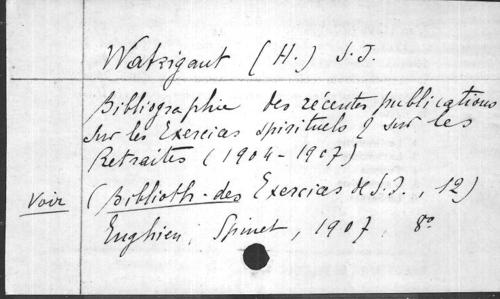 Watrigant (H.) S.J.
Bibliographie des récentes publications
sur les Exercices spirituels & sur les
Retraites (1904-1907)
Voir (Biblioth. des Exercices de S.J., 12)
Enghien, Spinet, 1907, 8°